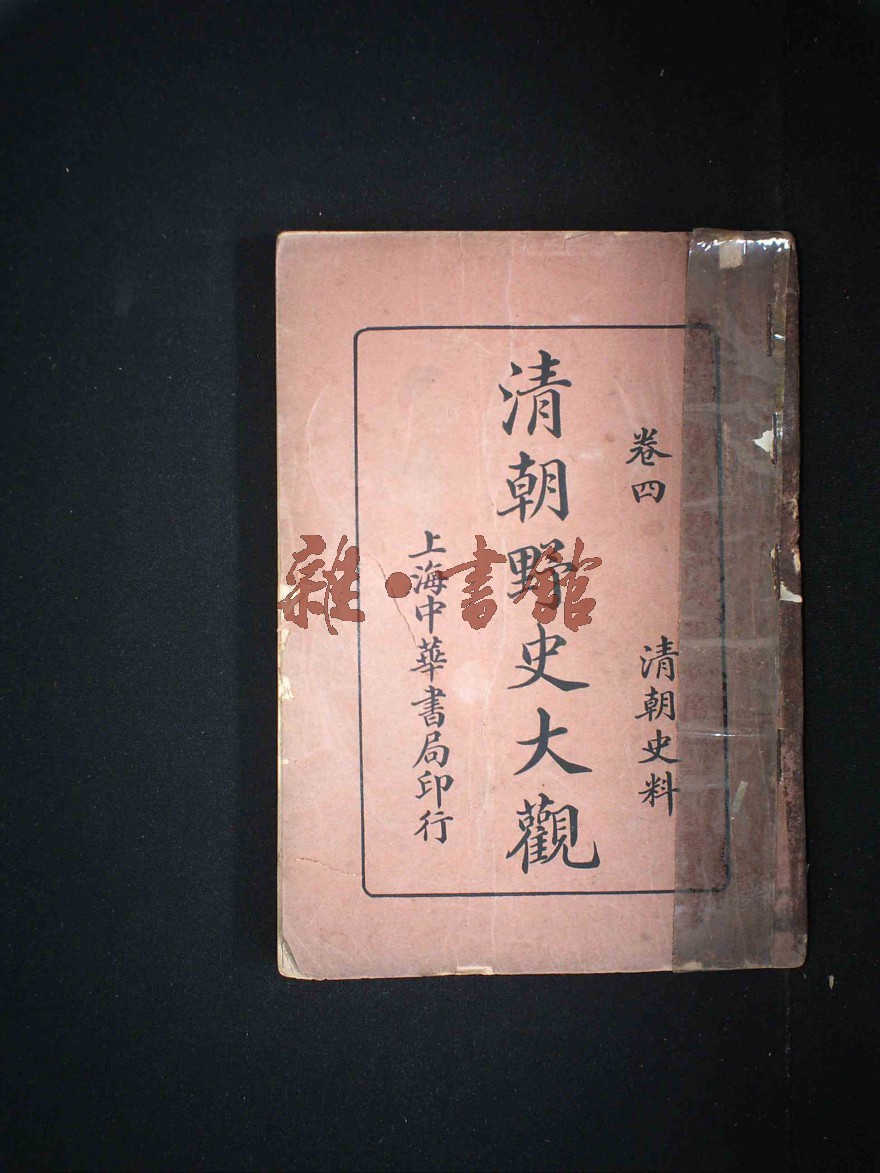 卷四　清朝史料
清朝野史大觀
上海中華書局印行
雜·書館